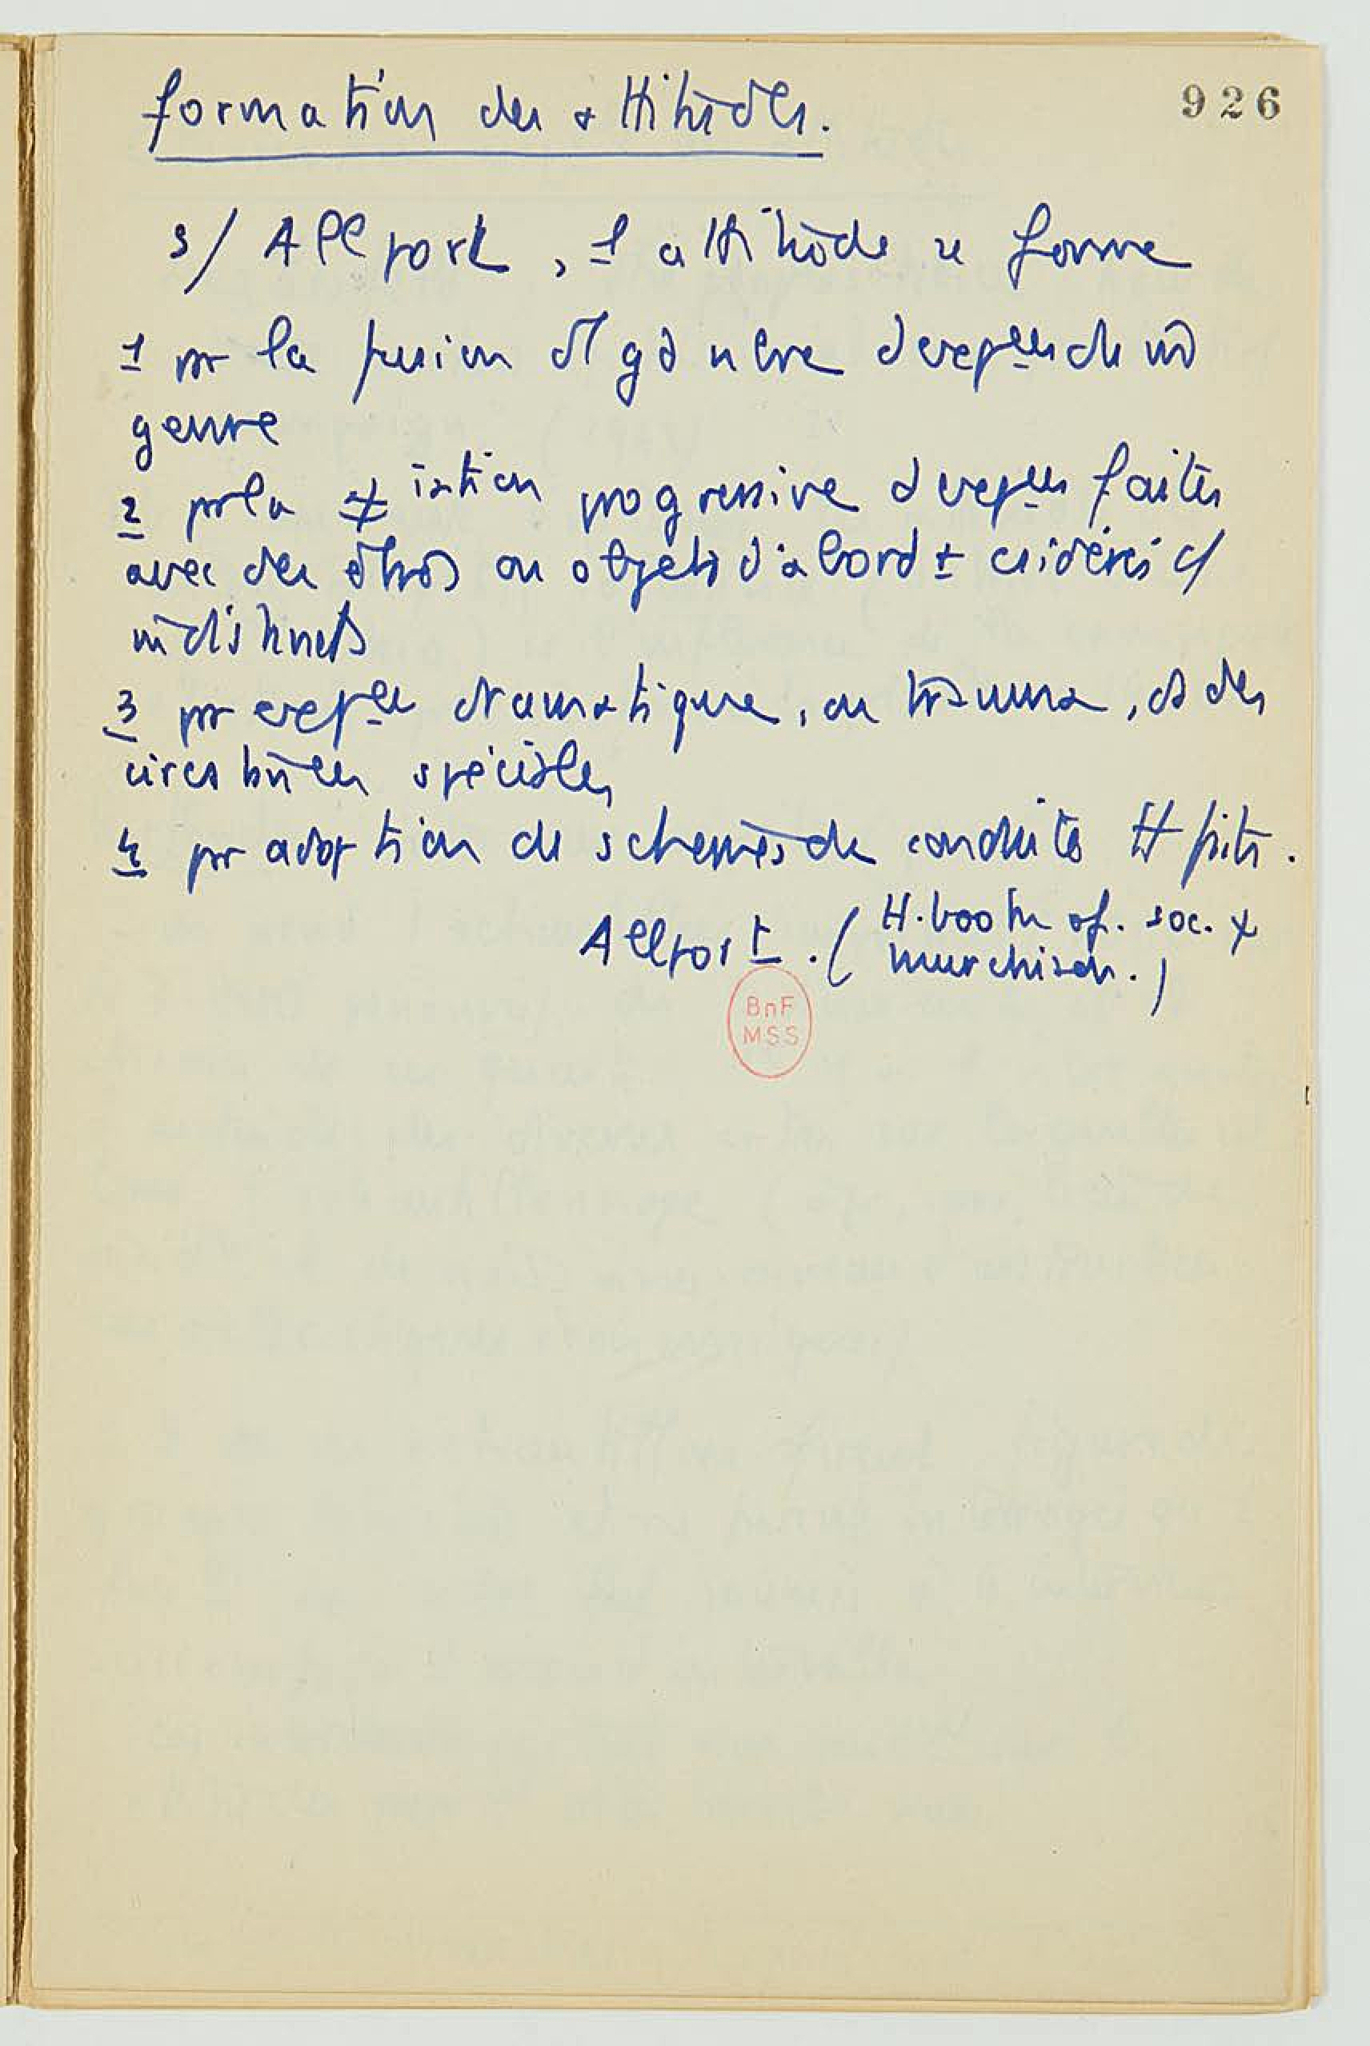 926
formation des attitudes.
s/ Allport, 1 attitude se forme
1 pr la fusion d'1 gd nbre d'expces du m̂
genre
2 pr la ≠ iation progressive d'expces faites
avec des êtres ou objets d'abord ± csidérés c/
indistincts
3 pr expce dramatique, ou trauma, ds des
circstances spéciales
4 pr adoption de schemes de conduites tt faits.
Allport. (H. book of. soc. ψ
Murchison.)
BnF
MSS